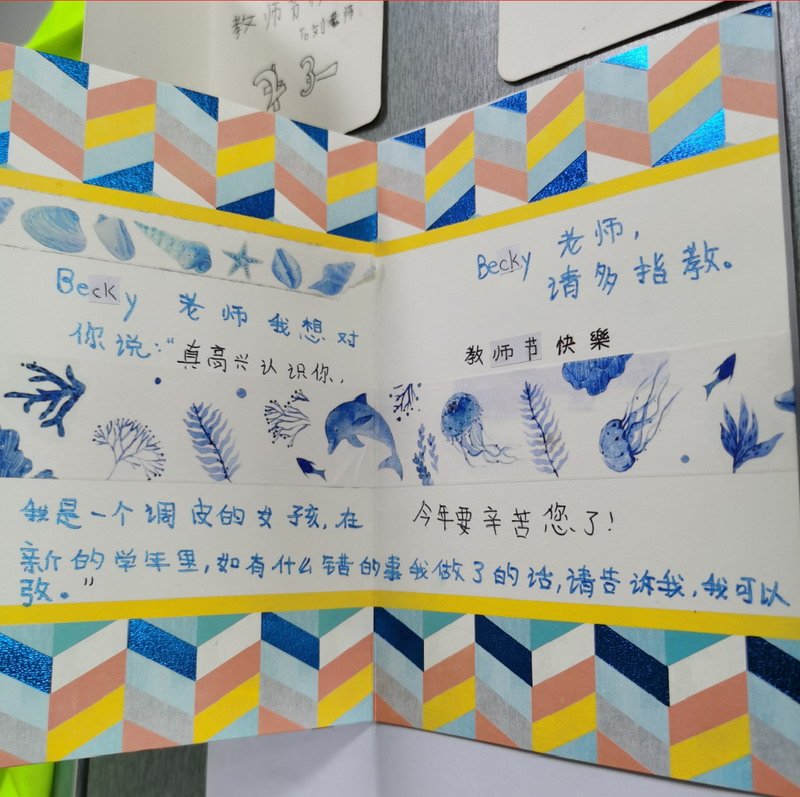 教师节
Becky 老师 我想对
你说：“真高兴认识你，
Becky 老师，
请多指教。
教师节快樂
我是一个调皮的女孩，在
今年要辛苦您了！
新的学年里，如有什么错的事我做了的话，请告诉我，我可以
改。”